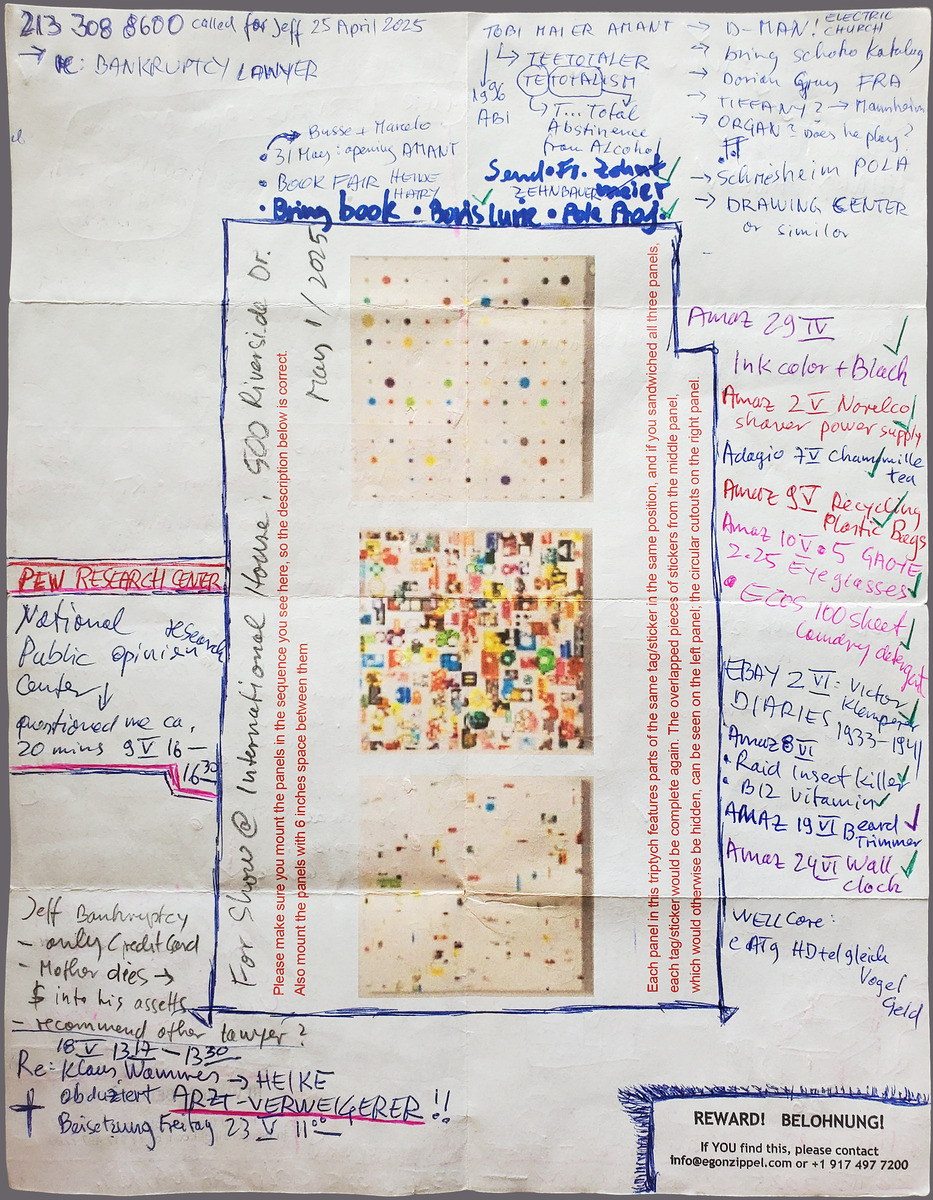 213 308 8600 called for Jeff 25 April 2025
→ re: BANKRUPTCY LAWYER
TOBI MAIER AMANT
TEETOTALER
TETOTALISM
1996
ABI
T... Total
Abstinence
from Alcohol
→ D-MAN! ELECTRIC CHURCH
→ bring scho Katalog
→ Dorian Gray FRA
→ TIFFANY? → Mannheim
→ ORGAN? Does he play?
→ Schriesheim POLA
→ DRAWING CENTER
or similar
• Busse + Marcelo
• 31 May: opening AMANT
• BOOK FAIR HEIDE
HATRY
Send • Fr. Zehntmeier
ZEHNBAUER
• Bring book • Boris Lurie • Pole Prog.
For Show @ International House, 500 Riverside Dr.
May 1/2025
Please make sure you mount the panels in the sequence you see here, so the description below is correct.
Also mount the panels with 6 inches space between them
Each panel in this triptych features parts of the same tag/sticker in the same position, and if you sandwiched all three panels,
each tag/sticker would be complete again. The overlapped pieces of stickers from the middle panel,
which would otherwise be hidden, can be seen on the left panel; the circular cutouts on the right panel.
Amaz 29 IV
Ink color + Black
Amaz 2 V Norelco
shaver power supply
Adagio 7 V Chammille
tea
Amaz 9 V Recycling
Plastic Bags
Amaz 10 V • 5 GAOYE
2.25 Eyeglasses
• ECOS 100 sheet
laundry detergent
EBAY 2 VI: Victor
Klemperer
DIARIES 1933-1941
Amaz 8 VI
• Raid Insect Killer
• B12 Vitamin
AMAZ 19 VI Beard
Trimmer
Amaz 24 VI Wall
clock
WELLCare:
HD+tel gleich
Vogel
Geld
PEW RESEARCH CENTER
National research
Public opinion
Center
questioned me ca.
20 mins 9 V 16 —
16 30
Jeff Bankruptcy
- only Credit Card
- Mother dies →
$ into his assetts
- recommend other lawyer?
18 V 13 17 — 13 30
Re: Klaus Wammes → HEIKE
obduziert ARZT-VERWEIGERER!!
Beisetzung Freitag 23 V 11 00
REWARD! BELOHNUNG!
If YOU find this, please contact
info@egonzippel.com or +1 917 497 7200